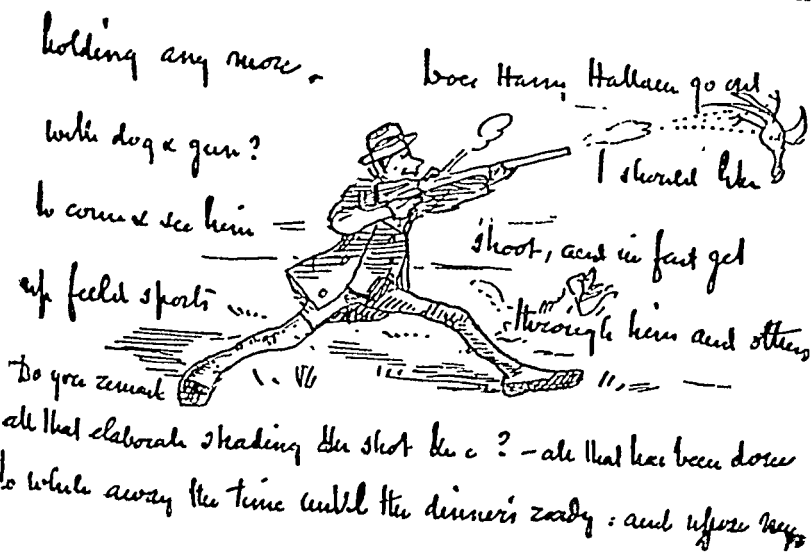 holding any more.
Does Harry Hallam go out
with dog & gun?
I should like
to come & see him
shoot, and in fact get
up field sports
through him and others
Do you remark
all that elaborate shading the shot &c ? – all that has been done
to while away the time until the dinner's ready : and upon